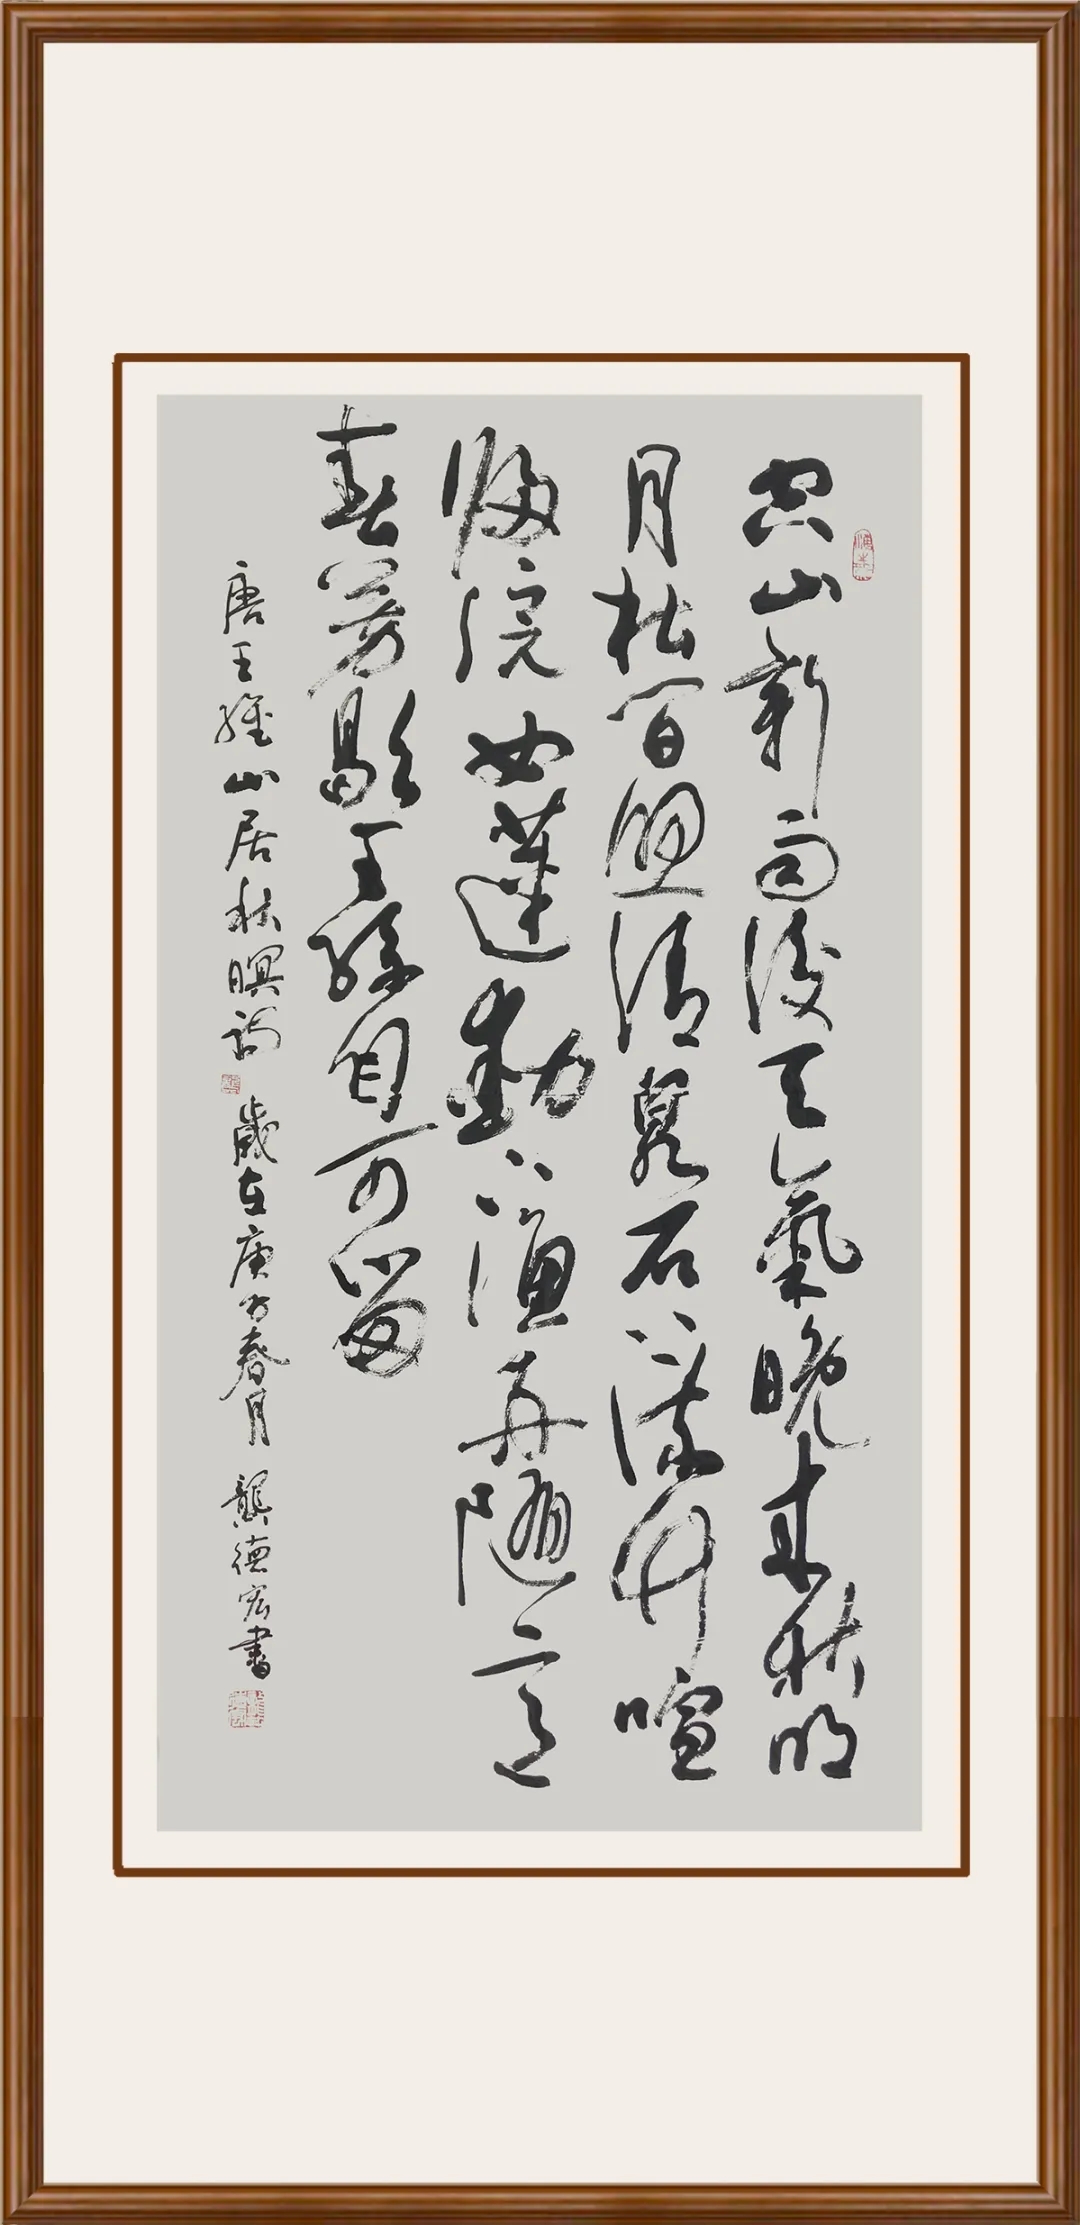 空山新雨後天氣晚来秋明
月松間照清泉石上流竹喧
歸浣女蓮動下漁舟隨意
春芳歇王孫自可留
唐王維山居秋暝詩 歲在庚子春月 龔德宏書